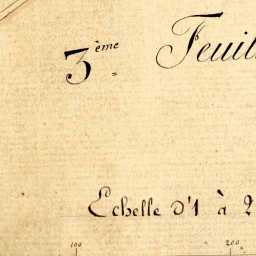 3ème Feuil
Echelle d'1 à 2
100 200